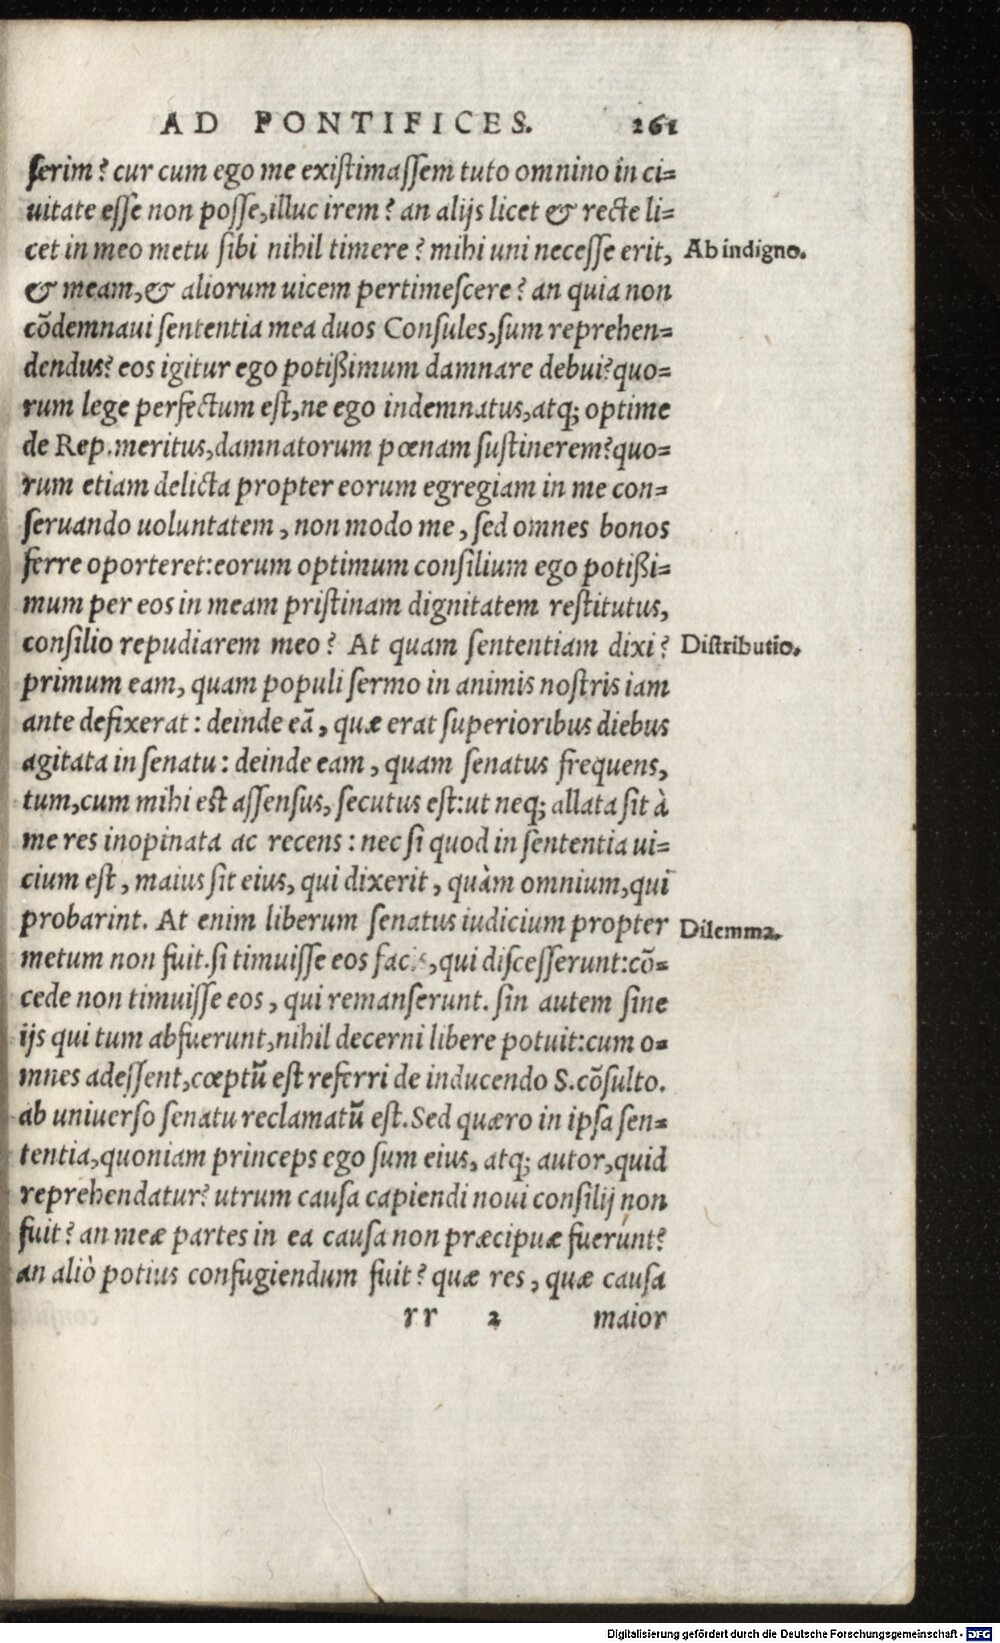 AD PONTIFICES. 261
ſerim? cur cum ego me exiſtimaſſem tuto omnino in ci=
uitate eſſe non poſſe,illuc irem? an alijs licet & recte li=
cet in meo metu ſibi nihil timere? mihi uni neceſſe erit,
Ab indigno.
& meam,& aliorum uicem pertimeſcere? an quia non
cõdemnaui ſententia mea duos Conſules,ſum reprehen=
dendus? eos igitur ego potißimum damnare debui?quo=
rum lege perfectum eſt,ne ego indemnatus,atq; optime
de Rep.meritus,damnatorum pœnam ſuſtinerem?quo=
rum etiam delicta propter eorum egregiam in me con=
ſeruando uoluntatem, non modo me, ſed omnes bonos
ferre oporteret:eorum optimum conſilium ego potißi=
mum per eos in meam priſtinam dignitatem reſtitutus,
conſilio repudiarem meo? At quam ſententiam dixi?
Diſtributio.
primum eam, quam populi ſermo in animis noſtris iam
ante defixerat: deinde eã, quæ erat ſuperioribus diebus
agitata in ſenatu: deinde eam, quam ſenatus frequens,
tum,cum mihi eſt aſſenſus, ſecutus eſt:ut neq; allata ſit à
me res inopinata ac recens: nec ſi quod in ſententia ui=
cium eſt, maius ſit eius, qui dixerit, quàm omnium,qui
probarint. At enim liberum ſenatus iudicium propter
Dilemma.
metum non fuit.ſi timuiſſe eos ,qui diſceſſerunt:cõ=
cede non timuiſſe eos, qui remanſerunt. ſin autem ſine
ijs qui tum abfuerunt,nihil decerni libere potuit:cum o=
mnes adeſſent,cœptũ eſt referri de inducendo S.cõſulto.
ab uniuerſo ſenatu reclamatũ eſt.Sed quæro in ipſa ſen=
tentia,quoniam princeps ego ſum eius, atq; autor,quid
reprehendatur? utrum cauſa capiendi noui conſilij non
fuit? an meæ partes in ea cauſa non præcipuæ fuerunt?
an aliò potius confugiendum fuit? quæ res, quæ cauſa
rr 2 maior
Digitalisierung gefördert durch die Deutsche Forschungsgemeinschaft - DFG